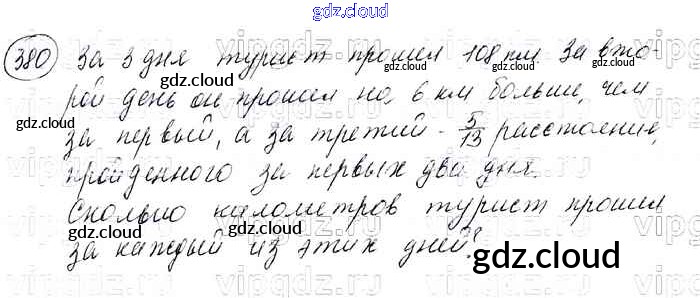 gdz.cloud
380 За 3 дня турист прошел 108 км. За вто-
gdz.cloud gdz.cloud
рой день он прошел на 6 км больше, чем
gdz.cloud gdz.cloud
за первый, а за третий - 5/13 расстояния,
gdz.cloud
пройденного за первых два дня.
Сколько километров турист прошел
gdz.cloud
за каждый из этих дней?
gdz.cloud